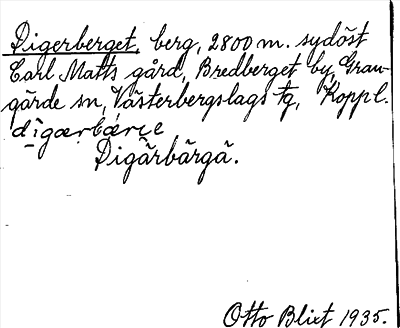 Digerberget, berg, 2800 m. sydöst
Carl Matts gård, Bredberget by, Gran-
gärde sn, Västerbergslags tg, Koppl.
digærbærɩe
Digärbärgä.
Otto Blixt 1935.